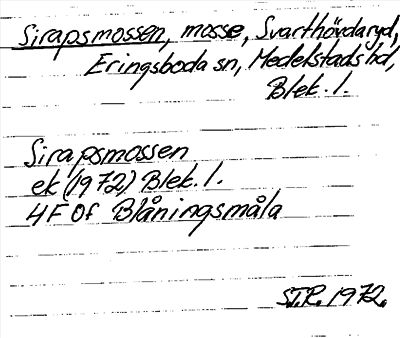 Sirapsmossen, mosse, Svarthövdaryd,
Eringsboda sn, Medelstads hd,
Blek. l.
Sirapsmossen
ek (1972) Blek. l.
4F 0f Blåningsmåla
S.T.R. 1972.